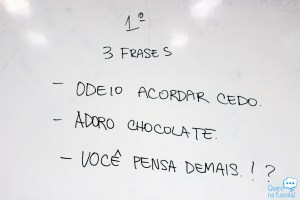 1º
3 FRASES
- ODEIO ACORDAR CEDO.
- ADORO CHOCOLATE.
- VOCÊ PENSA DEMAIS. ! ?